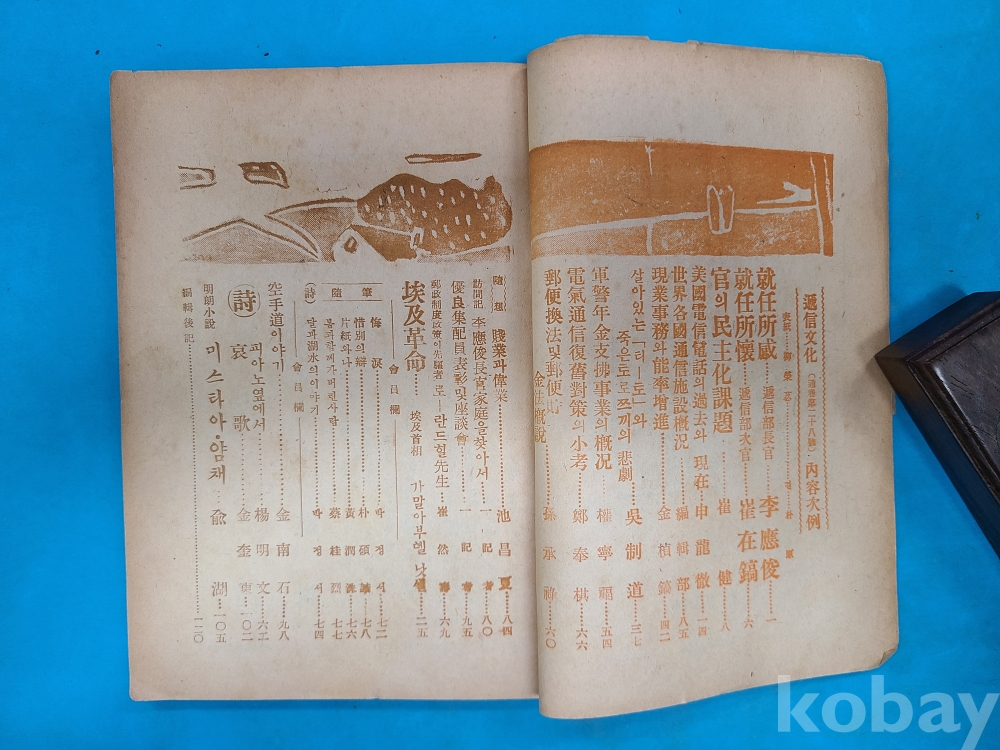 遞信文化 (通卷第二十八號) 內容次例
表紙
就任所感 遞信部長官 李應俊 一
就任所懷 遞信部次官 崔在鎬 六
官의民主化課題 崔健 八
美國電信電話의過去와 現在 申龍徹 一四
世界各國通信施設槪況 編輯部 八五
現業事務의能率增進 金楨鎬 四二
살아있는「디-토」와
죽으도로쯔끼의 悲劇 吳制道 三七
軍警年金支拂事業의槪況 權寧福 五四
電氣通信復舊對策의小考 鄭奉棋 六六
郵便換法및郵便
金法槪說 孫永祚 六〇
隨想 賤業과偉業 池昌夏 八四
訪問記 李應俊長官家庭을찾아서 一記者 八〇
優良集配員表彰및座談會 一記者 九五
郵政制度政策의先驅者 로-란드힐先生 崔然 六九
埃及革命 埃及首相 가말아부엘낫셀 二五
會員欄
隨筆
悔淚 七二
惜別의辯 朴碩 七八
片紙와나 黃潤 七六
물과함께가버린사람 蔡桂 七七
(詩) 달과湖水의이야기 七四
會員欄
空手道이야기 金南石 九八
詩 피아노옆에서 楊明文 六二
哀歌 金奎東 一〇二
明朗小說 미스타아·얌채 兪湖 一〇五
編輯後記 一二〇
kobay